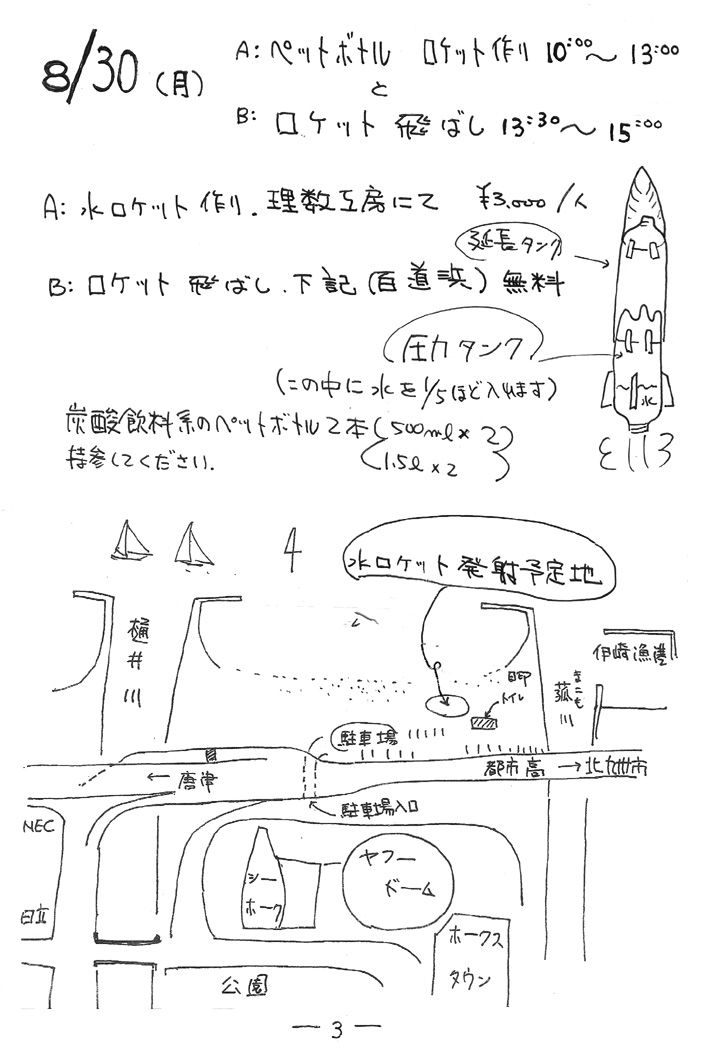 8/30(月)
A: ペットボトル ロケット作り 10:00〜13:00
と
B: ロケット飛ばし 13:30〜15:00
A: 水ロケット作り.理数工房にて ¥3,000/人
延長タンク
B: ロケット飛ばし.下記(百道浜)無料
圧力タンク
(この中に水を1/5ほど入れます)
水
炭酸飲料系のペットボトル2本(500ml×2)
(1.5l×2)
持参してください.
水ロケット発射予定地
樋井川
伊崎漁港
目印
トイレ
菰川
まこも
駐車場
←唐津
都市高
→北九州市
駐車場入口
NEC
日立
シーホーク
ヤフードーム
ホークスタウン
公園
— 3 —